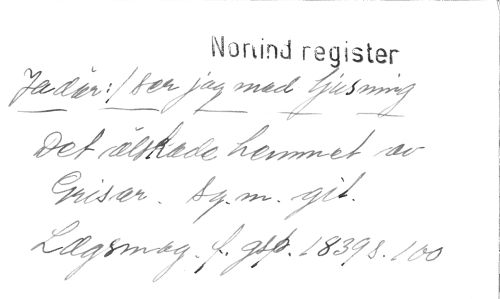 Norlind register
Ja där :/ ser jag med ljusning
Det älskade hemmet av
Grisar. Sg. m. git.
Lægsmag. f. gsp. 1839 s. 100